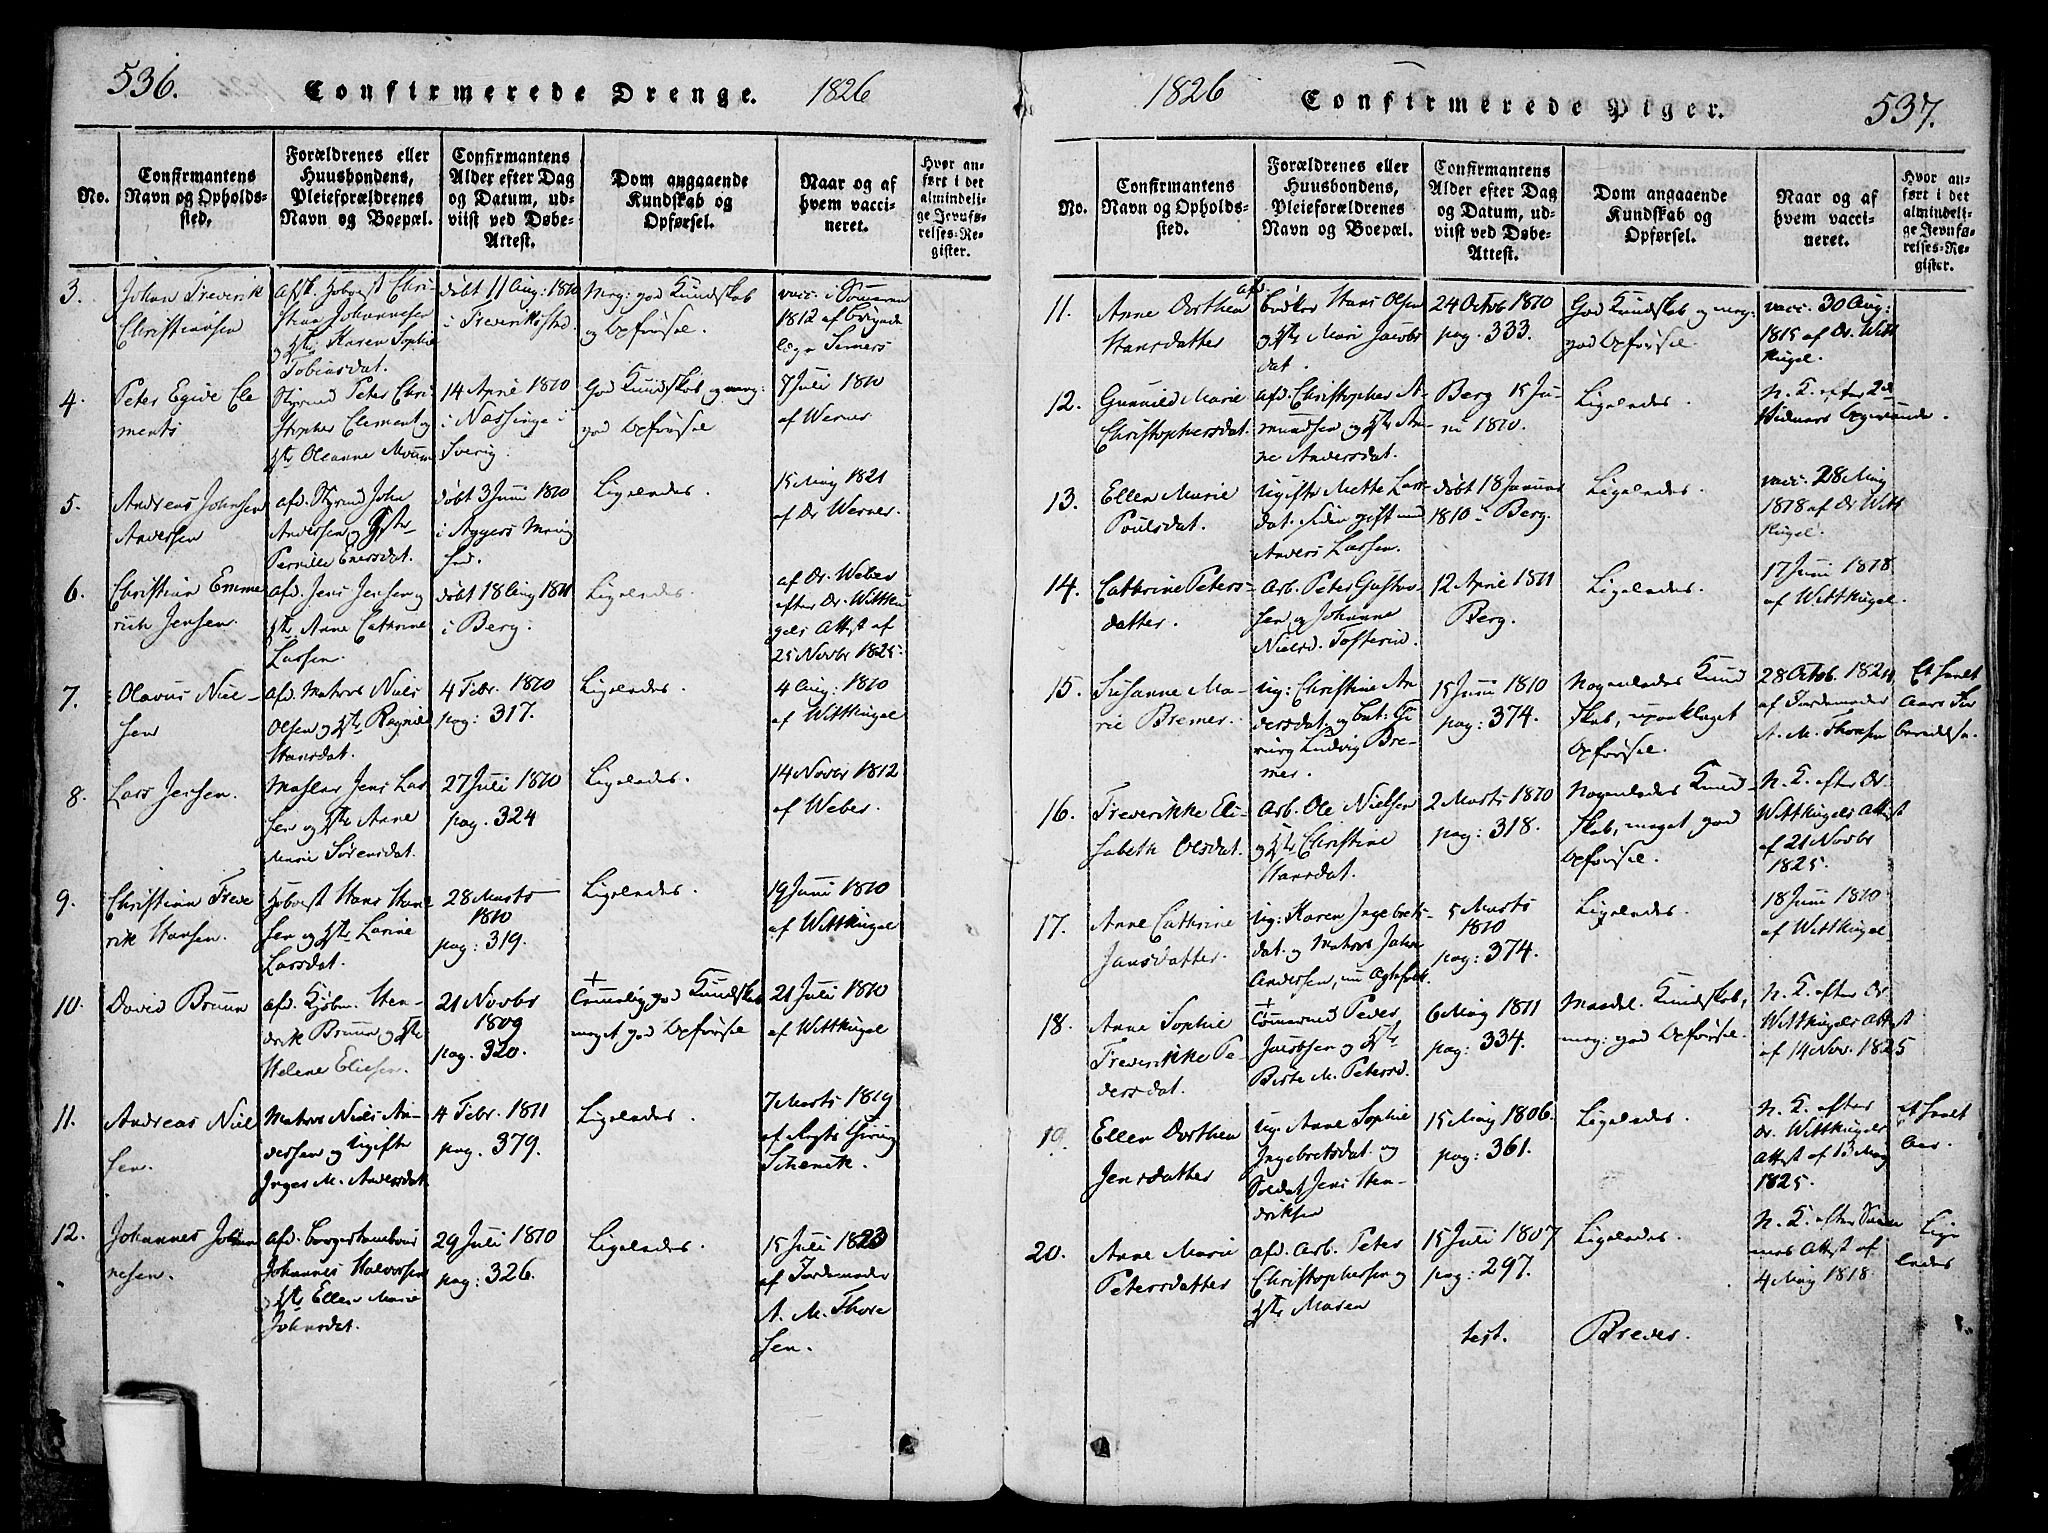 536.
Confirmerede Drenge. 1826
No.
Confirmantens Navn og Opholdssted.
Forældrenes eller Huusbondens, Pleieforældrenes Navn og Boepæl.
Confirmantens Alder efter Dag og Datum, udviist ved Døbe-Attest.
Dom angaaende Kundskab og Opførsel.
Naar og af hvem vaccineret.
Hvor anført i det almindelige Jevnførelses-Register.
3.
Johan Frederik
Christiansen
Christian Johannesen
og Karen Sophie
Tobiasdat.
døbt 11 Aug: 1810
i Frederikstad.
Meg: god Kundskab
og Opførsel.
vacc. i Sommeren
1812 af
4.
Peter Egide Cle
ments
Styrmd Peter Chri
stopher Clement og
Oleanne
14 April 1810
i Nassinge i
Sverig.
God Kundskab og meg:
god Opførsel
7 Juli 1810
af Werner
5.
Andreas Johnsen
Andersen
afd. Styrmd John
Andersen og
Pernille
døbt 3 Juni 1810
i Aggers
Ligeledes.
15 May 1821
af Dr Werner.
6.
Christian Emme
rich Jensen.
afd. Jens Jensen og
Anne Cathrine
Larsen.
døbt 18 Aug 1811
i Berg.
Ligeledes.
af Dr. Weber
efter Dr. Wittku
gels Attest af
25 Novbr 1825.
7.
Olavus Niel-
sen
afd. Matros Niels
Olsen og Ragnild
Hansdat.
4 Febr. 1810
pag: 317.
Ligeledes.
4 Aug: 1810
af Wittkugel
8.
Lars Jensen.
Jens Lar
sen og Anne
Marie Sørensdat.
27 Juli 1810
pag. 324
Ligeledes.
14 Novbr 1812
af Weber.
9.
Christian Frede
rik Hansen.
Hans Han
sen og Karine
Larsdat.
28 Marts
1810
pag: 319.
Ligeledes.
19 Juni 1810
af Wittkugel
10.
David Bruun
afd. Kjøbm. Hen-
drik Bruun og
Helene Eliesen.
21 Novbr
1809
pag. 320.
+
Temmelig god Kundskab
meget god Opførsel
21 Juli 1810
af Wittkugel
11.
Andreas Niel
sen.
Matros Niels An-
dersen og Ugifte
Inger M. Andersdat.
4 Febr. 1811
pag. 379.
Ligeledes.
7 Marts 1819
12.
Johannes Johan
nesen.
afd.
Johannes Halvorsen
Ellen Marie
Johnsdat.
29 Juli 1810
pag: 326.
Ligeledes.
15 Juli 1823
af Jordemoder
A. M. Thore
sen.
1826
Confirmerede Piger.
537.
No.
Confirmantens Navn og Opholdssted.
Forældrenes eller Huusbondens, Pleieforældrenes Navn og Boepæl.
Confirmantens Alder efter Dag og Datum, udviist ved Døbe-Attest.
Dom angaaende Kundskab og Opførsel.
Naar og af hvem vaccineret.
Hvor anført i det almindelige Jevnførelses-Register.
11.
Anne Dorthea
Hansdatter
afd. Bødker Hans Olsen
og Mari Jacobs
dat.
24 Octob 1810
pag. 333.
God Kundskab og meg:
god Opførsel.
vacc. 30 Aug:
1815 af Dr. Witt
kugel.
12.
Gunnild Marie
Christophersdat.
afd. Christopher A-
mundsen og An-
ne Andersdat.
Berg 15 Ju-
ni 1810.
Ligeledes.
N. K. efter
13.
Ellen Marie
Poulsdat.
Ugifte Mette Lars-
dat. siden gift med
Anders Larsen.
døbt 18 Januar
1810 i Berg.
Ligeledes.
vacc. 28 May
1818 af Dr Witt
kugel.
14.
Cathrine Peters-
datter.
Arb. Peter Gustav
sen og Johanne
Nielsd.
12 April 1811
Berg.
Ligeledes.
17 Juni 1818
af Wittkugel.
15.
Susanne Ma-
rie Bremer.
Ug: Christine An
dersdat. og
Ludvig Bre-
mer.
15 Juni 1810
pag: 374.
Nogenledes Kund
skab, upaaklaget
Opførsel.
28 Octob. 1824
af Jordemoder
A. M. Thoresen
Et halvt
Aars For
beredelse.
16.
Frederikke Eli-
sabeth Olsdat.
Arb. Ole Nielsen
og Christine
Hansdat.
2 Marts 1810
pag: 318.
Nogenledes Kund-
skab, meget god
Opførsel.
N. K. efter Dr.
Wittkugels Attest
af 21 Novbr
1825.
17.
Anne Cathrine
Jansdatter.
Ug: Karen Ingebrets-
dat. og Matros Jahn
Andersen, nu
5 Marts
1810
pag: 374.
Ligeledes.
18 Juni 1810
af Wittkugel
18.
Anne Sophie
Frederikke Pe-
dersdat.
+
Tømmermd Peder
Jacobsen og
Birte M. Petersd.
6 May 1811
pag: 334.
Maadel. Kundskab,
meg: god Opførsel.
N. K. efter Dr
Wittkugels Attest
af 14 Nov. 1825
19.
Ellen Dorthea
Jensdatter
Ug. Anne Sophie
Ingebretsdat. og
Soldat Jens Hen-
driksen
15 May 1806.
pag: 361.
Ligeledes.
N. K. efter
Dr. Wittkugels
Attest af 13 May
1825.
et halvt
Aar.
20.
Anne Marie
Petersdatter
afd. Arb. Peter
Christophersen og
Maren
15 Juli 1807
pag: 297.
Ligeledes.
N. K. efter
Attest af
4 May 1818
Lige
ledes
test.
Breder.